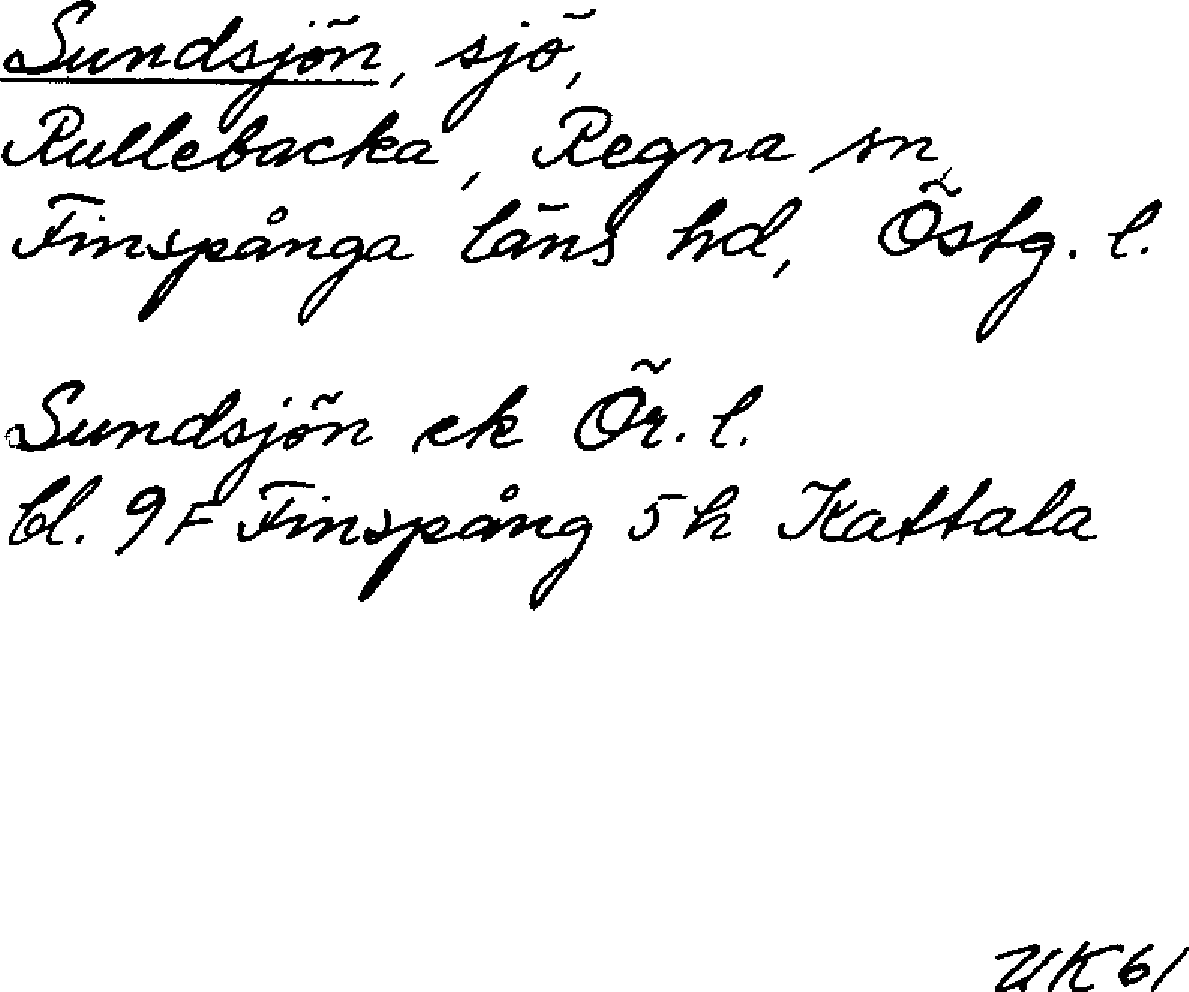 Sundsjön, sjö,
Rullebacka, Regna sn,
Finspånga läns hd, Östg. l.
Sundsjön ek Ör. l.
bl. 9F Finspång 5h Kattala
UK61